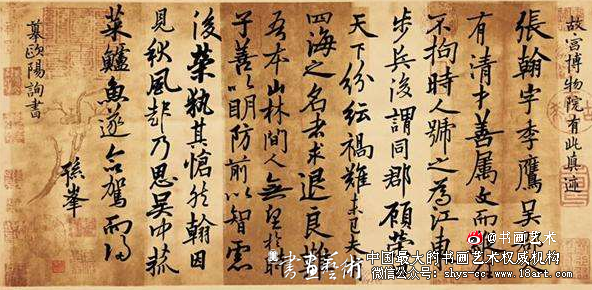 故宮博物院有此真迹
張翰字季鷹吳
有清才善属文而
不拘時人號之為江東
步兵後謂同郡顧榮
天下份纭禍難未已夫
四海之名者求退良難
吾本山林間人無望於時
子善以明防前以智慮
後榮執其愴然翰因
見秋風起乃思吳中菰
菜鱸魚遂命駕而歸
孫峯
摹歐陽詢書
@书画艺术
書畫藝術
中国最大的书画艺术权威机构
微信公众号：shys-cc www.18art.com